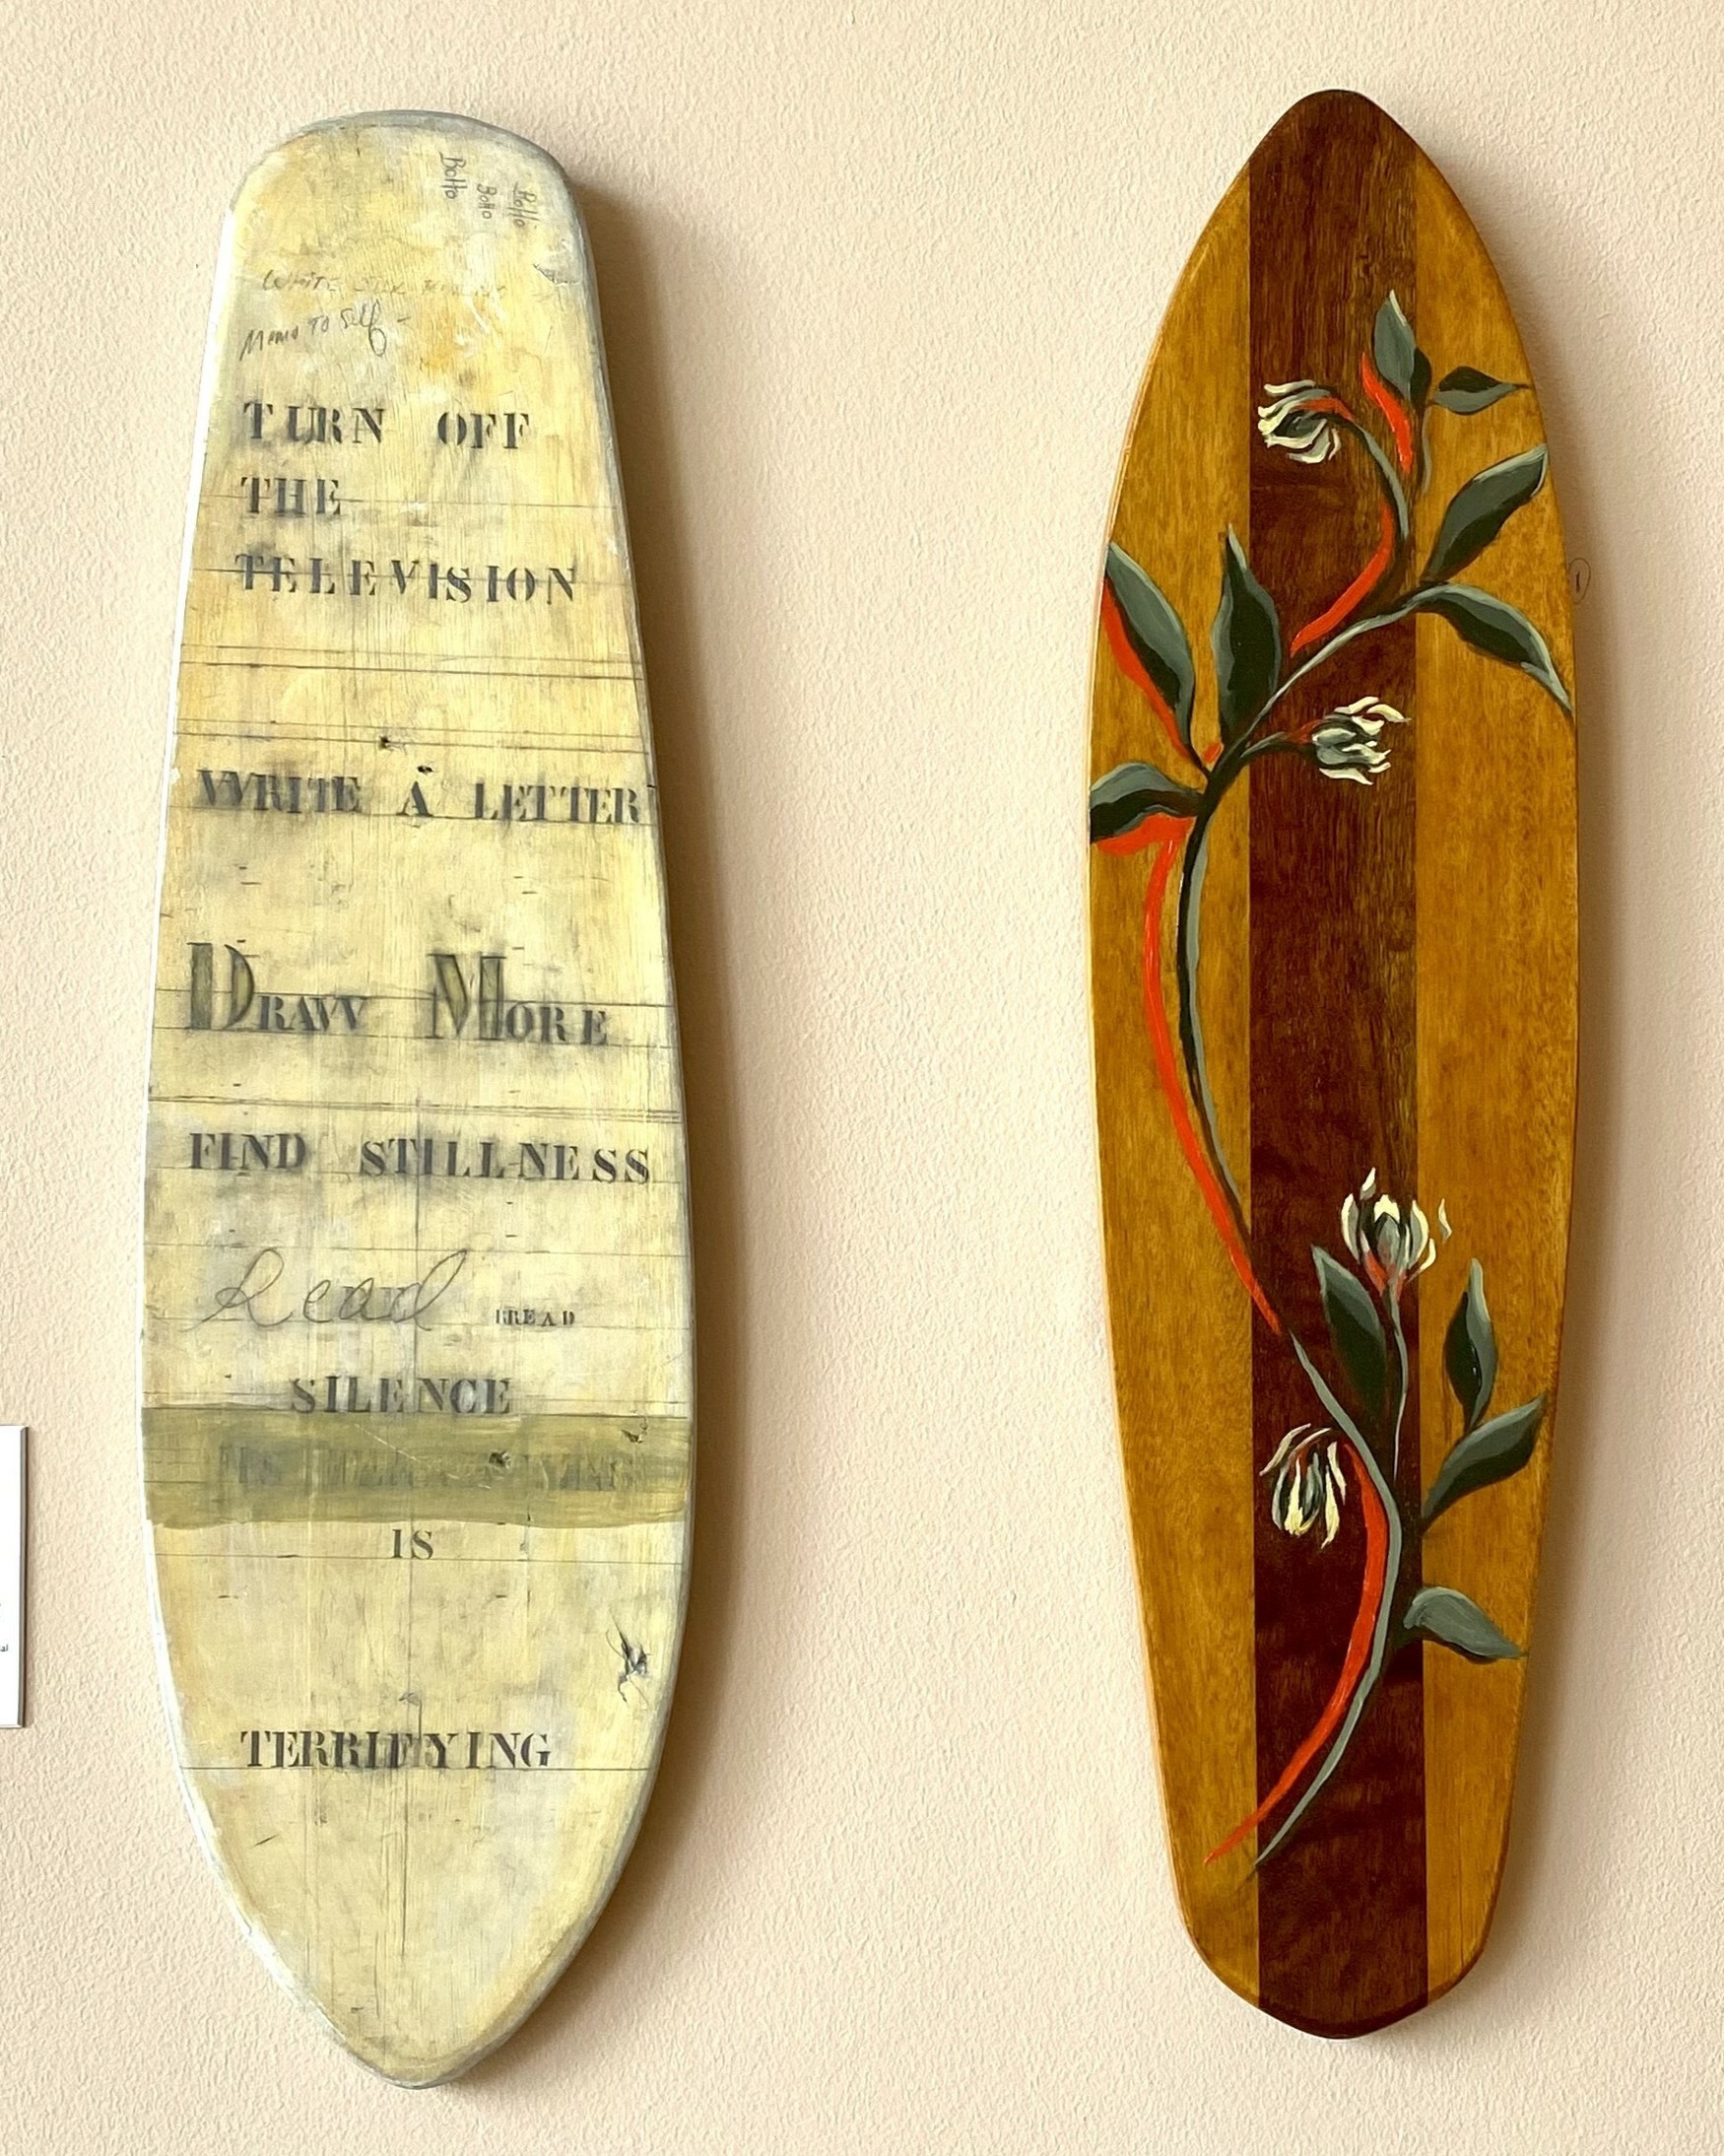 BoHo
BoHo
BoHo
WHITE
Memo TO Self -
TURN OFF
THE
TELEVISION
WRITE A LETTER
DRAW MORE
FIND STILLNESS
Read READ
SILENCE
IS TERRIFYING
IS
TERRIFYING
al
1